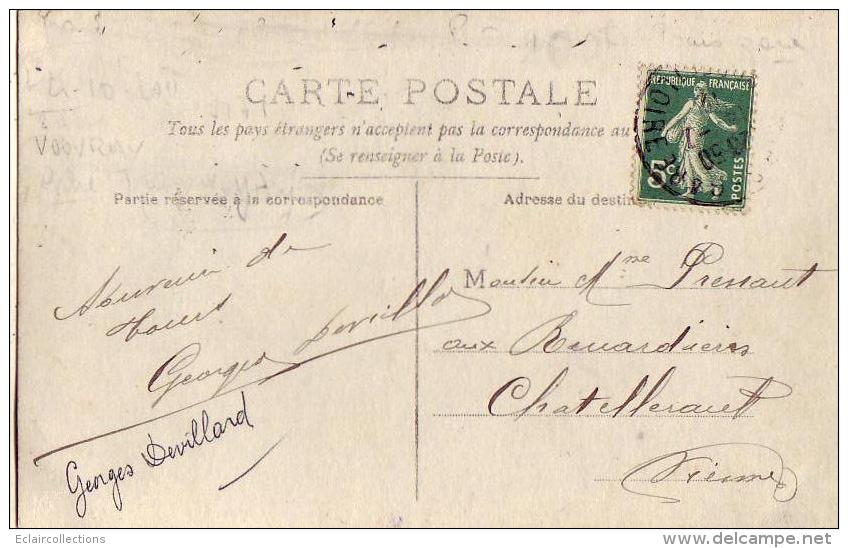 CARTE POSTALE
Tous les pays étrangers n'acceptent pas la correspondance au
(Se renseigner à la Poste).
Partie réservée à la correspondance
Adresse du destin
REPUBLIQUE FRANÇAISE
5c
POSTES
LOIRE
Souvenir de
Tours
Georges Devillard
Georges Devillard
Monsieur Mme Pressaut
aux Renardières
Chatellerault
Vienne
Eclaircollections
delcampe.net